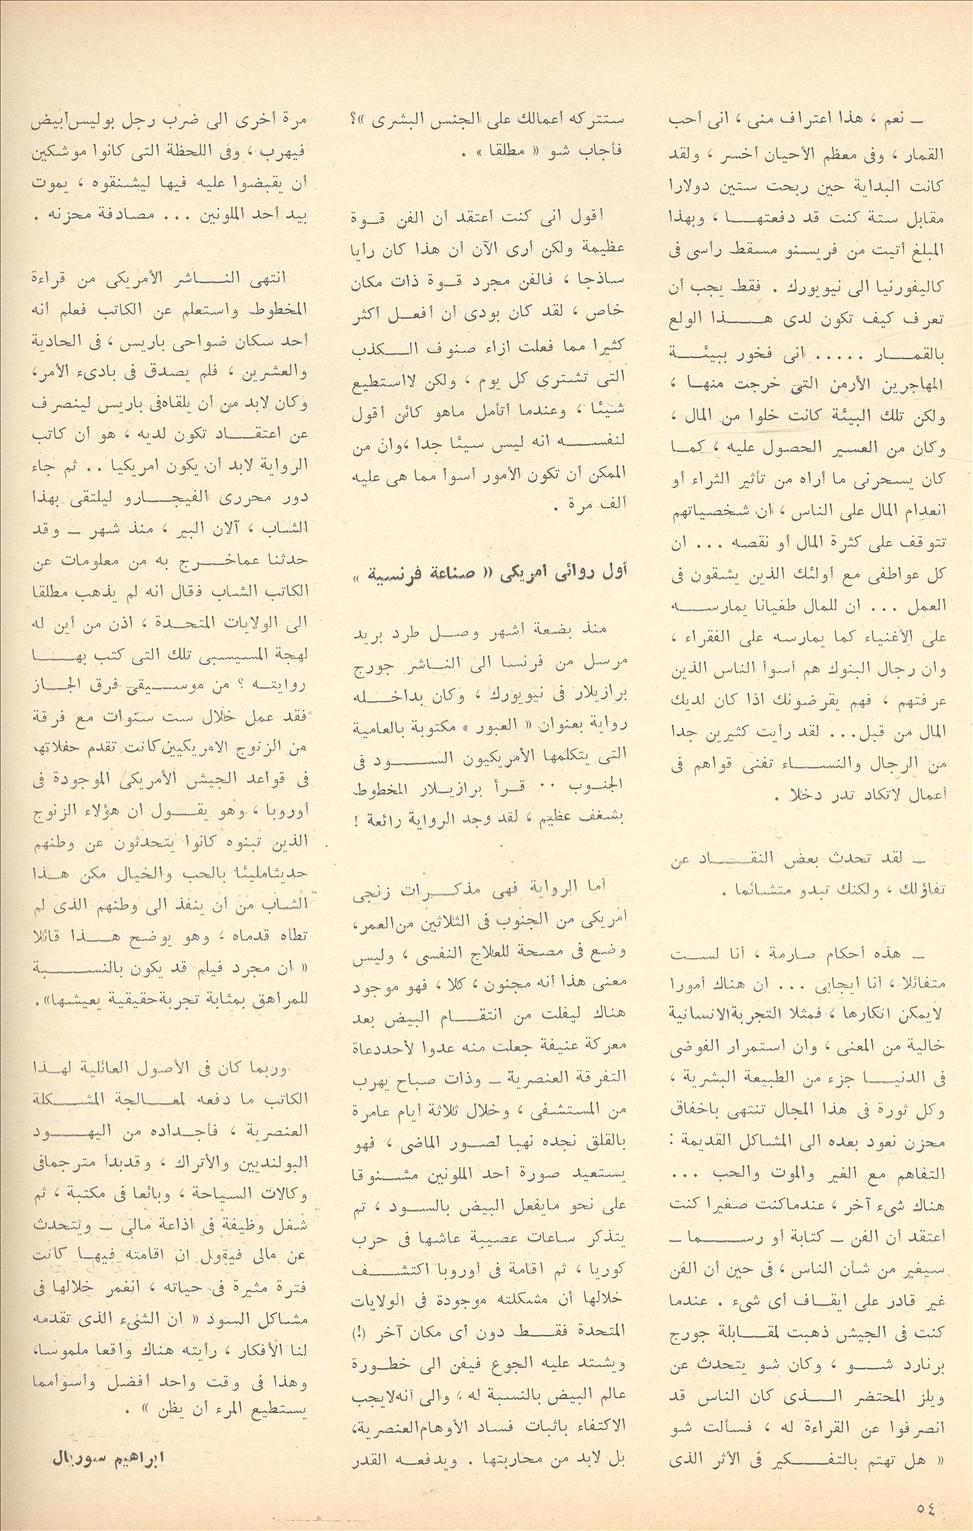 ـ نعم ، هذا اعتراف منى ، انى أحب
القمار ، وفى معظم الأحيان أخسر ، ولقد
كانت البداية حين ربحت ستين دولارا
مقابل ستة كنت قد دفعتهـا ، وبهذا
المبلغ أتيت من فريسنو مسقط رأسى فى
كاليفورنيا الى نيويورك . فقط يجب أن
تعرف كيف تكون لدى هـذا الولع
بالقمـار ..... انى فخور ببيئـة
المهاجرين الأرمن التى خرجت منهـا ،
ولكن تلك البيئة كانت خلوا من المال ،
وكان من العسير الحصول عليه ، كمـا
كان يسحرنى ما أراه من تأثير الثراء أو
انعدام المال على الناس ، ان شخصياتهم
تتوقف على كثرة المال أو نقصه ... ان
كل عواطفى مع أولئك الذين يشقون فى
العمل ... ان للمال طغيانا يمارسـه
على الأغنياء كما يمارسه على الفقراء ،
وان رجال البنوك هم أسوأ الناس الذين
عرفتهم ، فهم يقرضونك اذا كان لديك
المال من قبل... لقد رأيت كثيرين جدا
من الرجال والنسـاء تفنى قواهم فى
أعمال لاتكاد تدر دخلا .
ـ لقد تحدث بعض النقـاد عن
تفاؤلك ، ولكنك تبدو متشائما .
ـ هذه أحكام صارمة ، أنا لسـت
متفائلا ، أنا ايجابى ... ان هناك أمورا
لايمكن انكارها ، فمثلا التجربة الانسانية
خالية من المعنى ، وان استمرار الفوضى
فى الدنيـا جزء من الطبيعة البشرية ،
وكل ثورة فى هذا المجال تنتهى باخفاق
محزن نعود بعده الى المشاكل القديمة :
التفاهم مع الغير والموت والحب ...
هناك شىء آخر ، عندماكنت صغيرا كنت
أعتقد أن الفن ـ كتابة أو رسـما ـ
سيغير من شأن الناس ، فى حين أن الفن
غير قادر على ايقـاف أى شىء . عندما
كنت فى الجيش ذهبت لمقـابلة جورج
برنارد شـو ، وكان شو يتحدث عن
ويلز المحتضر الـذى كان الناس قد
انصرفوا عن القراءة له ، فسألت شو
« هل تهتم بالتفـكير فى الأثر الذى
ستتركه أعمالك على الجنس البشرى »؟
فأجاب شو « مطلقا » .
أقول انى كنت أعتقد أن الفن قـوة
عظيمة ولكن أرى الآن أن هذا كان رأيا
ساذجا ، فالفن مجرد قـوة ذات مكان
خاص ، لقد كان بودى أن أفعـل أكثر
كثيرا مما فعلت ازاء صنوف الـكذب
التى تشترى كل يوم ، ولكن لاأستطيع
شيئا ، وعندما أتأمل ماهو كائن أقول
لنفسـه انه ليس سيئا جدا ،وان من
الممكن أن تكون الأمور أسوأ مما هى عليه
ألف مرة .
أول روائى امريكى « صناعة فرنسية »
منذ بضعة أشهر وصـل طرد بريد
مرسل من فرنسا الى النـاشر جورج
برازيلار فى نيويورك ، وكان بداخـله
رواية بعنوان « العبور » مكتوبة بالعامية
التى يتكلمها الأمريكيون السـود فى
الجنوب .. قـرأ برازيـلار المخطوط
بشغف عظيم ، لقد وجد الرواية رائعة !
أما الرواية فهى مذكـرات زنجى
أمريكى من الجنوب فى الثلاثين من العمر،
وضع فى مصحة للعلاج النفسى ، وليس
معنى هذا أنه مجنون ، كلا ، فهو موجود
هناك ليفلت من انتقـام البيض بعد
معركة عنيفة جعلت منه عدوا لأحددعاة
التفرقة العنصرية ـ وذات صباح يهرب
من المستشفى ، وخلال ثلاثة أيام عامرة
بالقلق نجده نهبا لصـور الماضى ، فهو
يستعيد صورة أحد الملونين مشـنوقا
على نحو مايفعل البيض بالسـود ، ثم
يتذكر ساعات عصيبة عاشها فى حرب
كوريا ، ثم اقامة فى أوروبا اكتشـف
خلالها أن مشكلته موجودة فى الولايات
المتحدة فقـط دون أى مكان آخر (!)
ويشتد عليه الجوع فيفن الى خطـورة
عالم البيض بالنسبة له ، والى أنه لايجب
الاكتفاء باثبات فساد الأوهام العنصرية،
بل لابد من محاربتها . ويدفعـه القدر
مرة أخرى الى ضرب رجل بوليس أبيض
فيهرب ، وفى اللحظة التى كانوا موشكين
أن يقبضوا عليه فيها ليشنقوه ، يموت
بيد أحد الملونين ... مصادفة محزنه .
انتهى النـاشر الأمريكى من قراءة
المخطوط واستعلم عن الكاتب فعلم أنه
أحد سكان ضواحى باريس ، فى الحادية
والعشرين ، فلم يصدق فى بادىء الأمر،
وكان لابد من أن يلقاه فى باريس لينصرف
عن اعتقـاد تكون لديه ، هو أن كاتب
الرواية لابد أن يكون أمريكيا .. ثم جاء
دور محررى الفيجـارو ليلتقى بهذا
الشاب ، آلان البير ، منذ شهر ـ وقد
حدثنا عماخـرج به من معلومات عن
الكاتب الشاب فقال انه لم يذهب مطلقا
الى الولايات المتحـدة ، اذن من أين له
لهجة المسيسبى تلك التى كتب بهـا
روايتـه ؟ من موسـيقى فرق الجـاز
فقد عمل خلال ست سنوات مع فرقة
من الزنوج الامريكيين كانت تقدم حفلاتها
فى قواعد الجيش الأمريكى الموجودة فى
أوروبا ، وهو يقـول ان هؤلاء الزنوج
الذين تبنوه كانوا يتحدثون عن وطنهم
حديثا مليئا بالحب والخيال مكن هـذا
الشاب من أن ينفذ الى وطنهم الذى لم
تطأه قدماه ، وهو يوضح هـذا قائلا
« ان مجرد فيلم قد يكون بالنسـبة
للمراهق بمثابة تجربة حقيقية يعيشها».
وربما كان فى الأصول العائلية لهـذا
الكاتب ما دفعه لمعـالجة المشـكلة
العنصرية ، فأجداده من اليهـود
البولنديين والأتراك ، وقد بدأ مترجما فى
وكالات السياحة ، وبائعا فى مكتبة ، ثم
شغل وظيفة فى اذاعة مالى ـ ويتحدث
عن مالى فيقول ان اقامته فيهـا كانت
فترة مثيرة فى حياته ، انغمر خلالها فى
مشاكل السود « ان الشىء الذى تقدمه
لنا الأفكار ، رأيته هناك واقعا ملموسا،
وهذا فى وقت واحد أفضل وأسوأمما
يستطيع المرء أن يظن » .
ابراهيم سوريال
٥٤